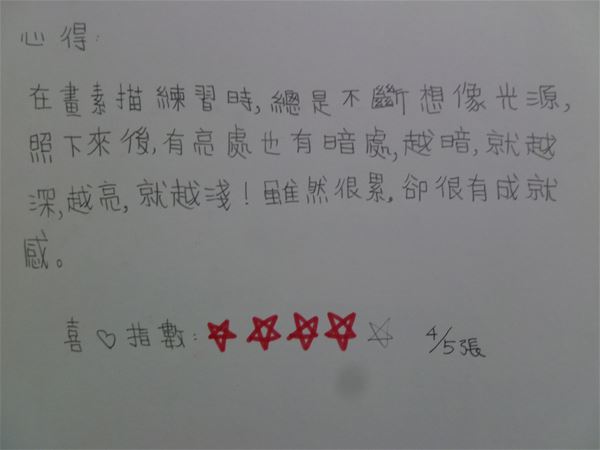 心得:
在畫素描練習時,總是不斷想像光源,
照下來後,有亮處也有暗處,越暗,就越
深,越亮,就越淺!雖然很累,卻很有成就
感。
喜♡指數:★★★★☆ 4/5張